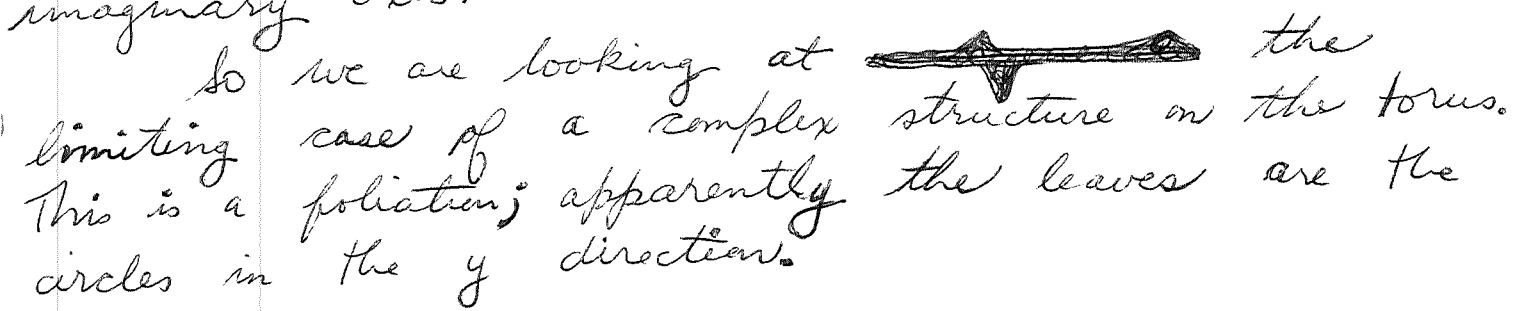 imaginary
So we are looking at the
limiting case of a complex structure on the torus.
This is a foliation; apparently the leaves are the
circles in the y direction.